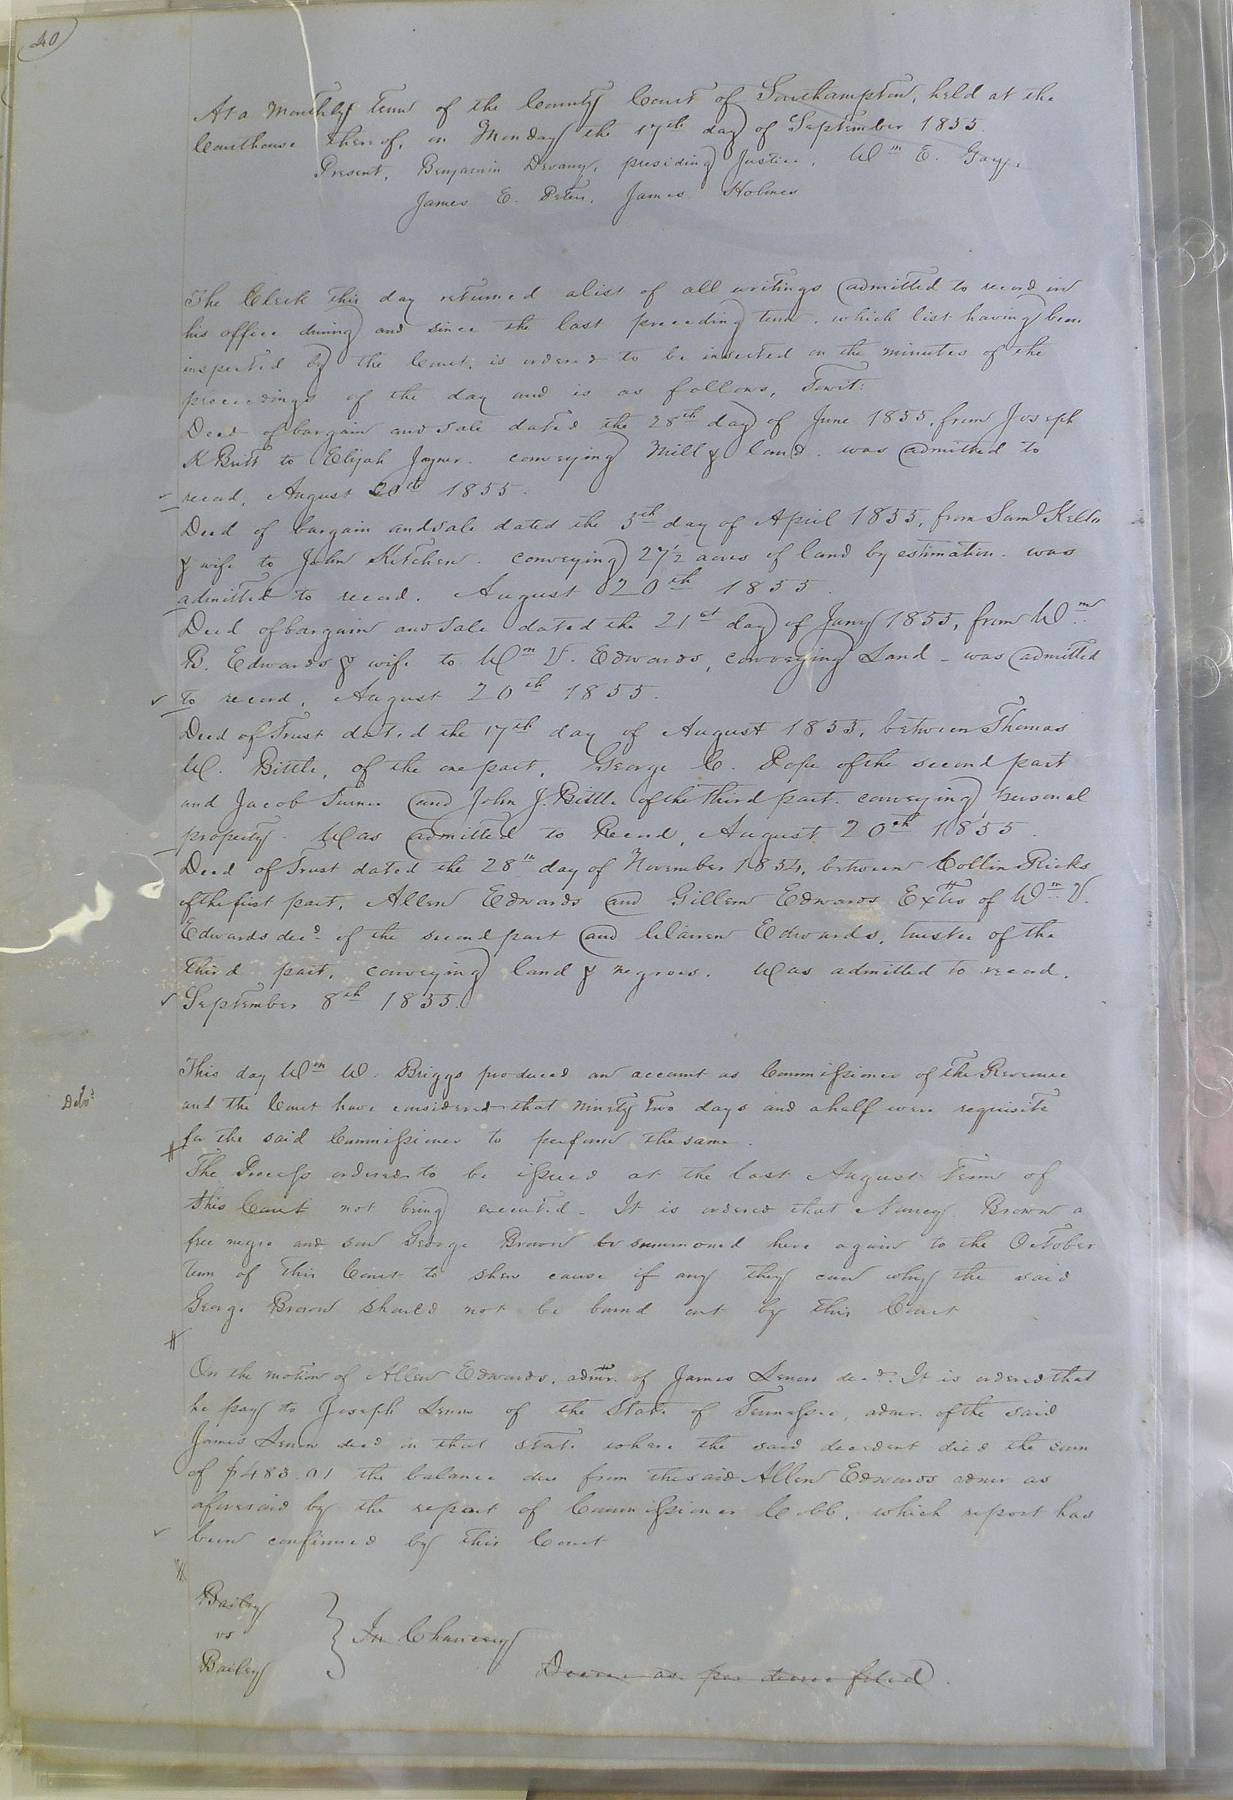 40
At a Monthly term of the County Court of Southampton, held at the
Courthouse thereof, on Monday the 17th day of September 1855.
Present, Benjamin Devany, presiding Justice, Wm E. Gay,
James E. Peters, James Holmes
The Clerk this day returned a list of all writings admitted to record in
his office during and since the last preceding term. which list having been
inspected by the Court, is ordered to be inserted in the minutes of the
proceedings of the day and is as follows, Towit:
Deed of bargain and sale dated the 28th day of June 1855, from Joseph
K Britt to Elijah Joyner. conveying Mill & land. was admitted to
record, August 20th 1855.
Deed of bargain and sale dated the 5th day of April 1855, from Saml Kello
& wife to John Kitchen. conveying 27½ acres of land by estimation. was
admitted to record. August 20th 1855.
Deed of bargain and sale dated the 21st day of Jany 1855, from Wm
B. Edwards & wife to Wm V. Edwards, conveying Land - was admitted
to record, August 20th 1855.
Deed of Trust dated the 17th day of August 1855, between Thomas
W. Bittle, of the one part, George C. Pope of the second part
and Jacob Turner and John J. Bittle of the third part. conveying personal
property. Was admitted to Record, August 20th 1855.
Deed of Trust dated the 28th day of November 1854, between Collin Ricks
of the first part, Allen Edwards and Gillem Edwards Extrs of Wm V.
Edwards decd of the second part and Warren Edwards, trustee of the
third part, conveying land & negroes. Was admitted to record.
September 8th 1855.
This day Wm W. Briggs produced an account as Commissioner of the Revenue
and the Court have considered that ninety two days and a half were requisite
for the said Commissioner to perform the same.
The Process ordered to be issued at the last August term of
this Court not being executed. It is ordered that Nancy Brown a
free negro and son George Brown be summoned here again to the October
term of this Court to shew cause if any they can why the said
George Brown should not be bound out by this Court
On the motion of Allen Edwards, admr. of James decd. It is ordered that
he pay to Joseph of the State of Tennessee, admr. of the said
James decd in that state where the said decedent died the sum
of $483.01 the balance due from the said Allen Edwards admr as
aforesaid by the report of Commissioner Cobb, which report has
been confirmed by this Court
Bailey
vs
Bailey
In Chancery
Decree as per decree filed.